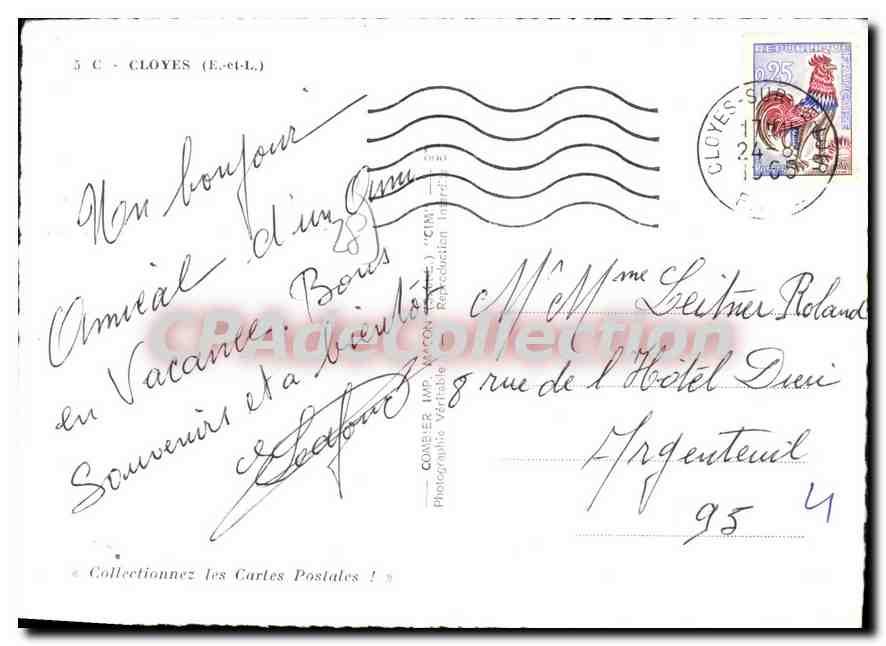 5 C - CLOYES (E.-et-L.)
REPUBLIQUE FRANÇAISE
0,25
CLOYES-SUR
17H
24-8
1965
Un bonjour
Amical d'un Ami
en Vacances. Bons
Souvenirs et a bientôt
COMBIER IMP. MACON (S.-&-L.) "CIM"
Photographie Véritable - Reproduction Interdite
Mr Mme Leitner Roland
8 rue de l'Hôtel Dieu
Argenteuil
95
4
« Collectionnez les Cartes Postales ! »
CPAdeCollection